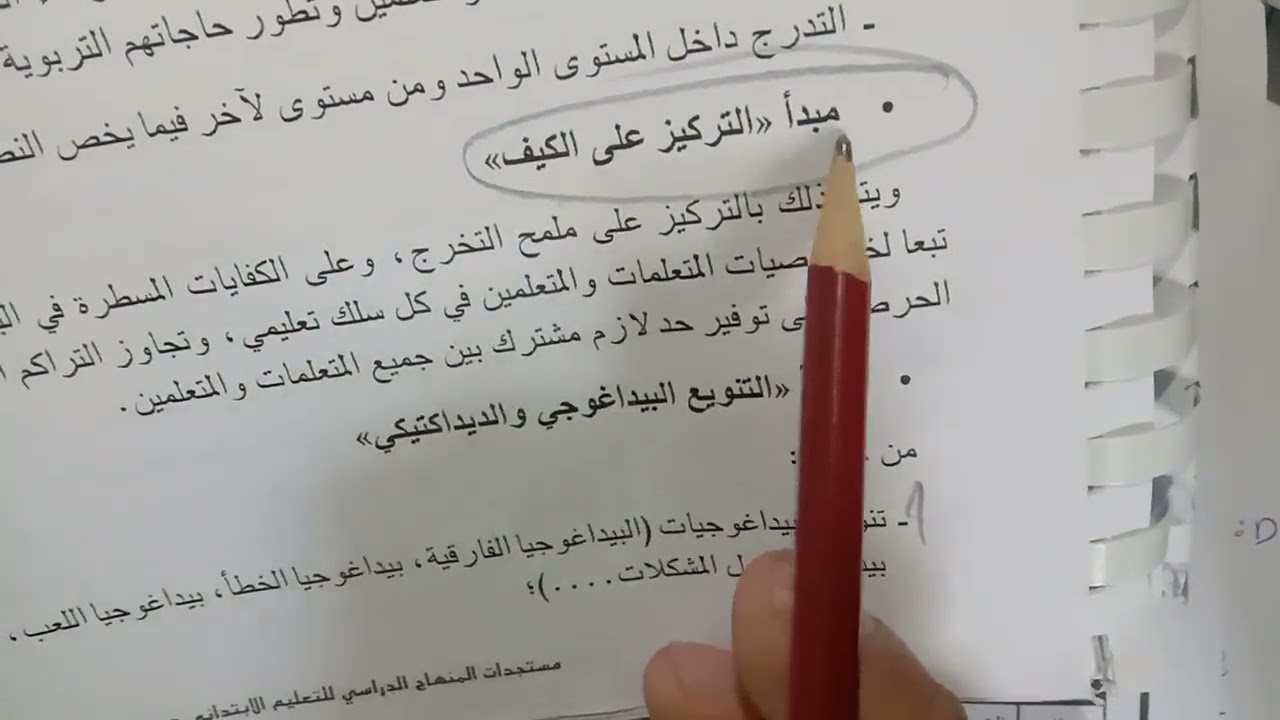 وتطور حاجاتهم التربوية
- التدرج داخل المستوى الواحد ومن مستوى لآخر فيما يخص
• مبدأ «التركيز على الكيف»
ذلك بالتركيز على ملمح التخرج، وعلى الكفايات المسطرة في
تبعا المتعلمات والمتعلمين في كل سلك تعليمي، وتجاوز التراكم
توفير حد لازم مشترك بين جميع المتعلمات والمتعلمين.
• «التنويع البيداغوجي والديداكتيكي»
من :
- (البيداغوجيا الفارقية، بيداغوجيا الخطأ، بيداغوجيا اللعب،
المشكلات....)؛
مستجدات المنهاج الدراسي للتعليم الابتدائي
:D